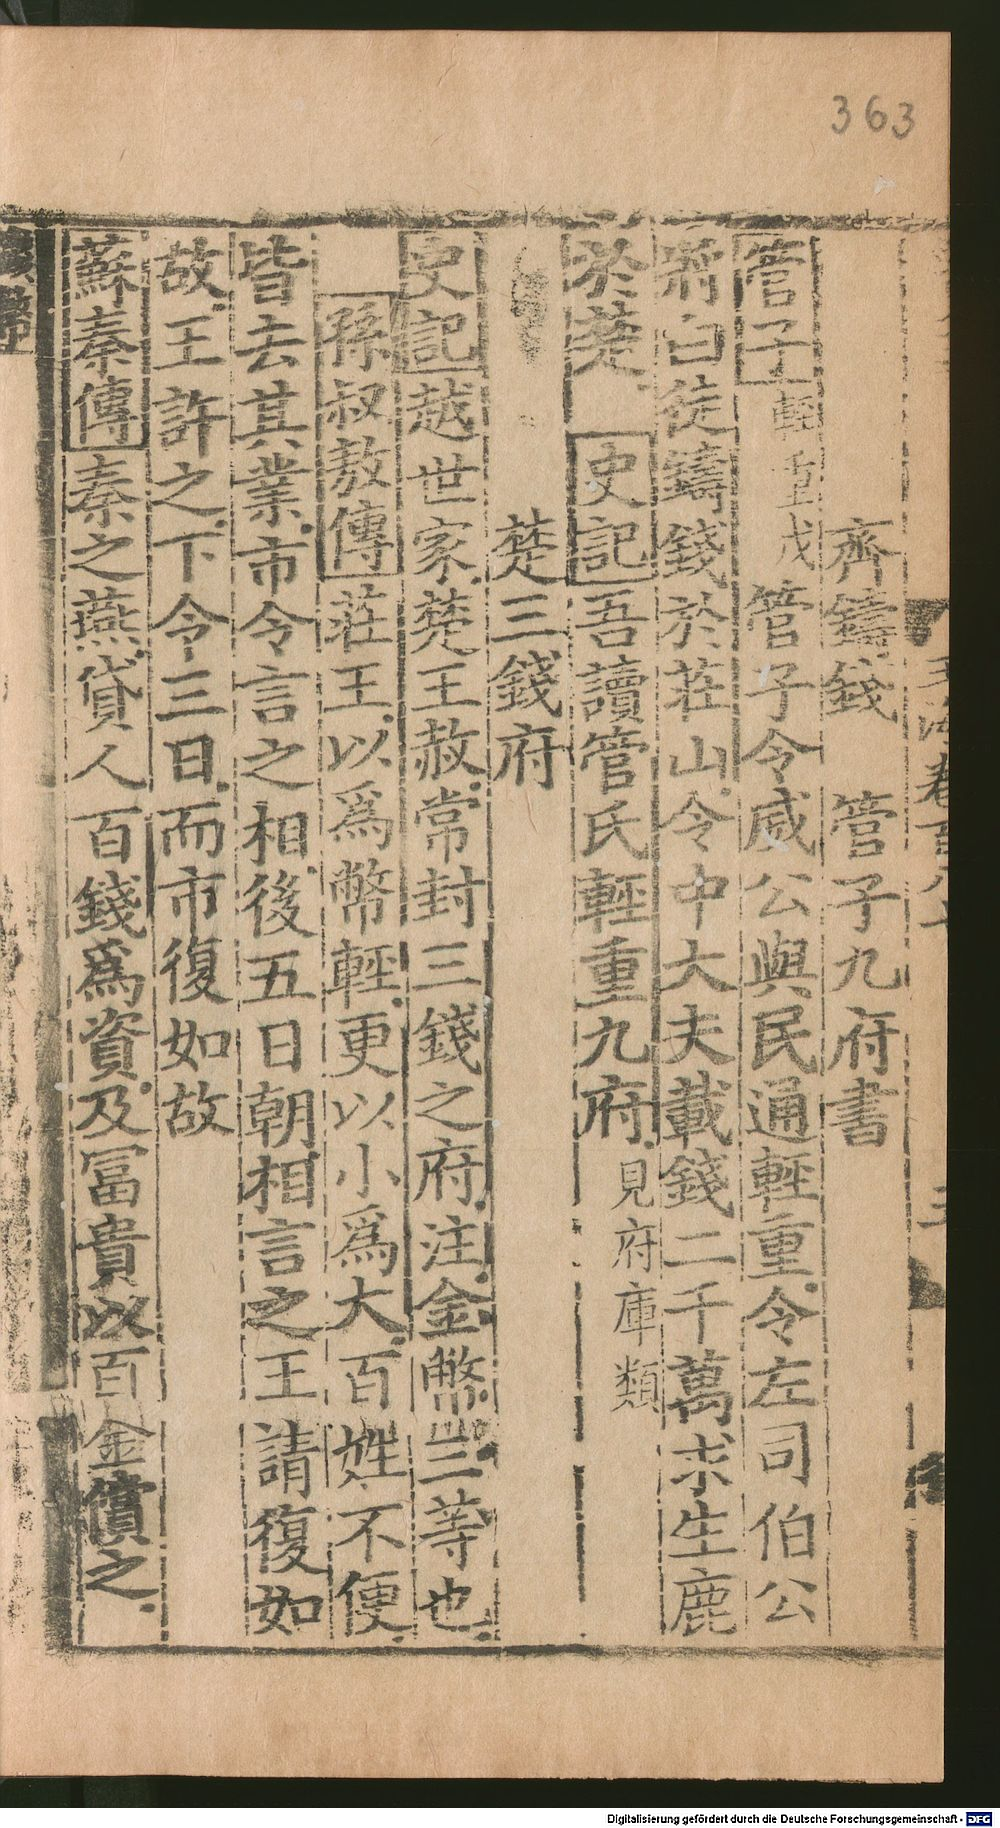 363
玉海卷百八十
三
齊鑄錢　管子九府書
管子輕重戊管子令威公與民通輕重令左司伯公
將白徒鑄錢於莊山令中大夫載錢二千萬求生鹿
於楚　史記吾讀管氏輕重九府見府庫類
楚三錢府
史記越世家楚王赦常封三錢之府注金幣三等也
孫叔敖傳莊王以爲幣輕更以小爲大百姓不便
皆去其業市令言之相後五日朝相言之王請復如
故王許之下令三日而市復如故
蘇秦傳秦之燕貸人百錢爲資及冨貴以百金償之
Digitalisierung gefördert durch die Deutsche Forschungsgemeinschaft - DFG